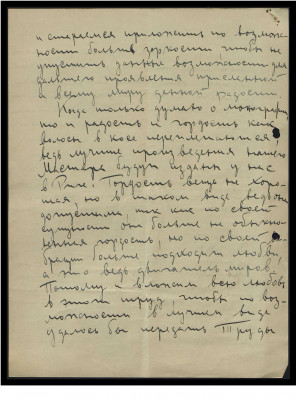 и стараемся приложить по возмож-
ности больше зоркости чтобы не
упустить данные возможности для
дальнего проявления присланной
а всему миру данной радости
Когда только думаю о монографии
то и радость и гордость как
волосы в косе переплетаются,
ведь лучшие произведения нашего
Мастера будут изданы у нас
в Риге! Гордость вещь не хоро-
шая, но в таком виде ведь она
допустима, так как по своей
сущности она больше не обыкно-
венная гордость, но по своей ви-
брации больше подходит любви,
а это ведь двигатель миров.
Потому и вложим всю любовь
в этот труд, чтобы по воз-
можности в лучшем виде
удалось бы передать труды